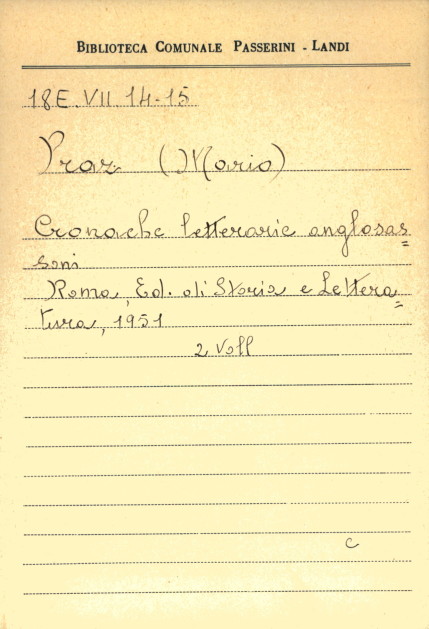 BIBLIOTECA COMUNALE PASSERINI - LANDI
18E. VII 14-15
Praz (Mario)
Cronache letterarie anglosas=
soni
Roma, Ed. di Storia e Lettera=
tura, 1951
2 Voll
c